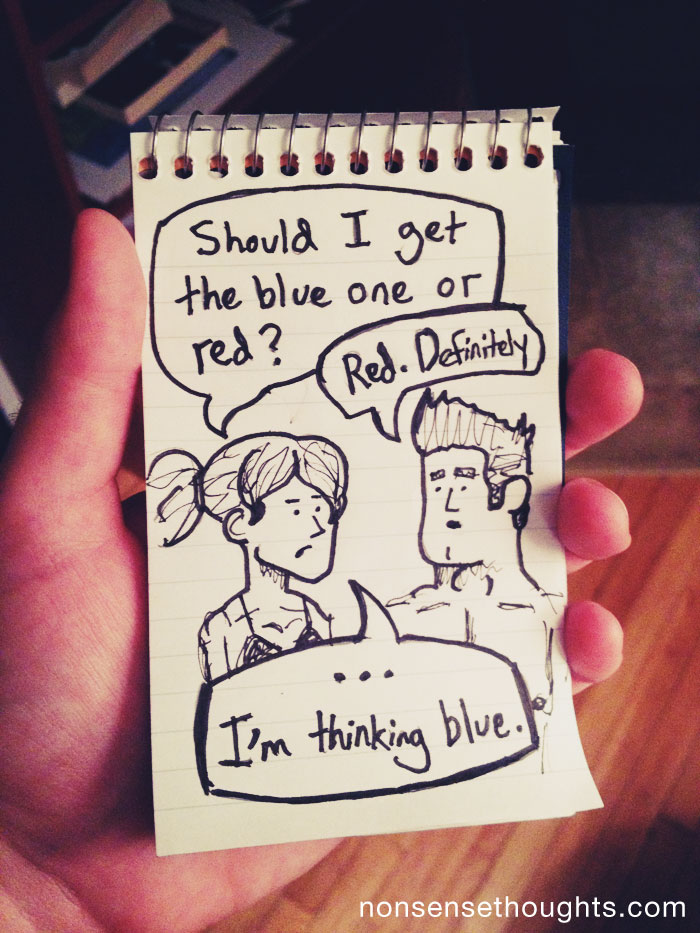 Should I get
the blue one or
red?
Red. Definitely
...
I'm thinking blue.
nonsensethoughts.com